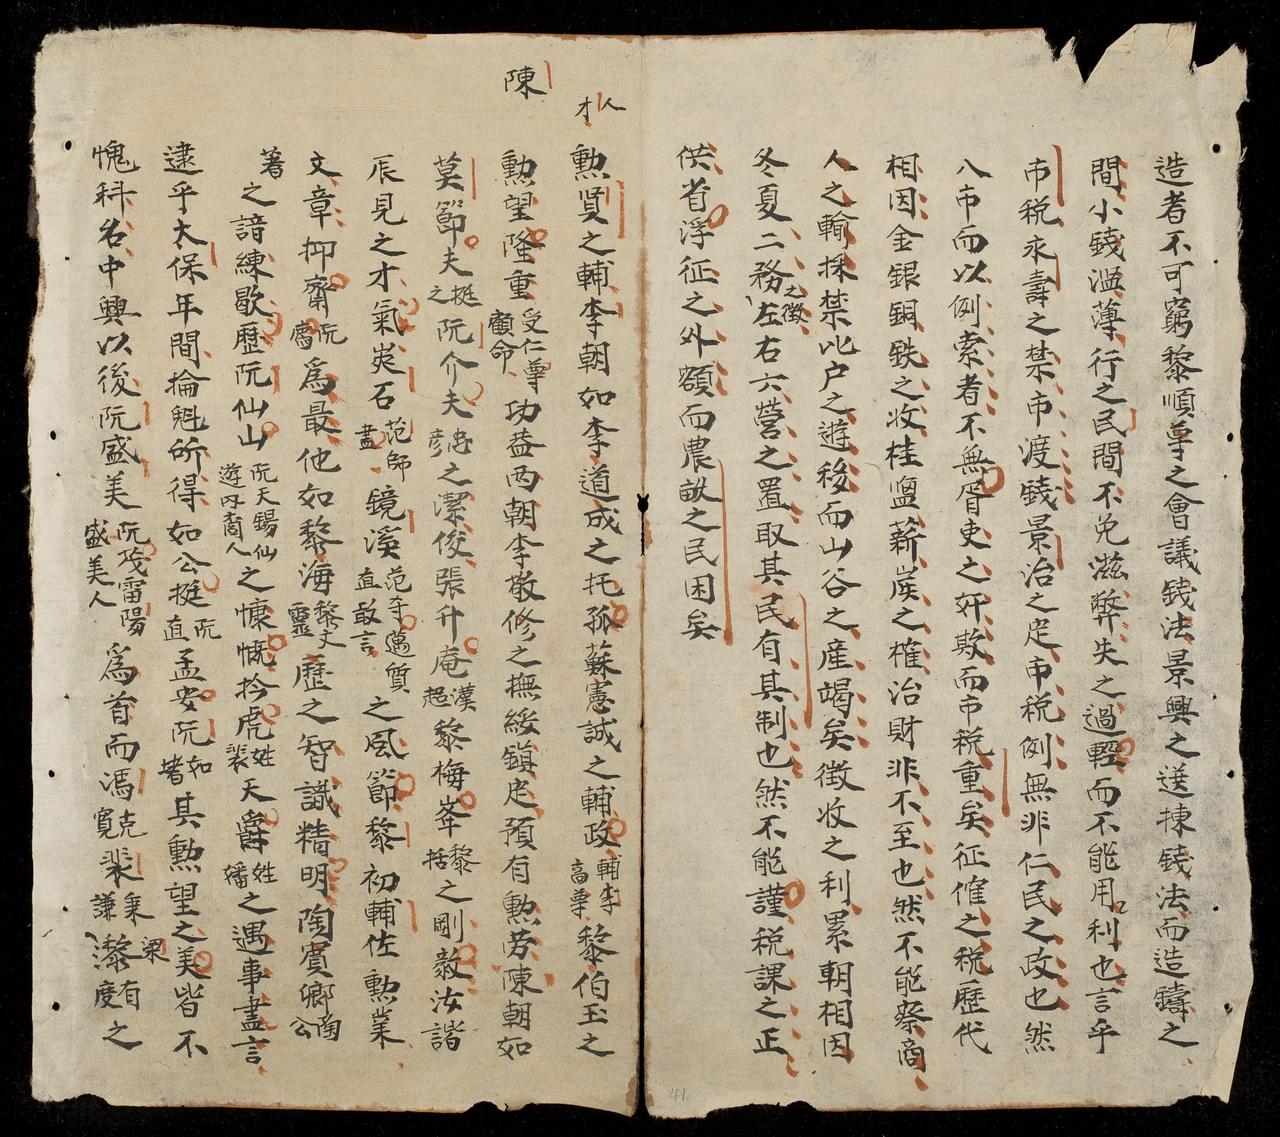 造者不可窮黎順尊之會議錢法景興之送揀錢法而造鑄之
間小錢濫薄行之民間不免滋弊失之過輕而不能用利也言乎
市税永壽之禁市渡錢景治之定市税例無非仁民之政也然
八市而以例索者不無胥吏之奸欺而市税重矣征催之税歷代
相因金銀銅鉄之收桂塩薪炭之榷治財非不至也然不能祭商
人之輸採禁比户之遊移而山谷之産竭矣徴收之利累朝相因
冬夏二務之徴左右六營之置取其民有其制也然不能謹税課之正
供省浮征之外額而農畝之民困矣
人才
勲賢之輔李朝如李道成之托孤蘇憲誠之輔政輔李高尊黎伯玉之
陳
勲望隆重受仁尊顧命功益两朝李敬修之撫綏鎮定預有勲劳陳朝如
莫節夫挺之阮介夫忠彦之潔俊張升庵漢超黎梅峯黎括之剛毅汝諧
辰見之才氣炭石范師孟鏡溪范夲邁質直敢言之風節黎初輔佐勲業
文章抑齋阮廌爲最他如黎海黎文靈歷之智識精明陶賓卿陶公
著之諳練歇歷阮仙山阮天錫仙遊内裔人之慷慨拎虎姓裴天爵姓潘之遇事盡言
逮乎太保年間掄魁所得如公挺阮直孟安阮如堵其勲望之美皆不
愧科名中興以後阮盛美阮茂雷陽盛美人爲首而馮克寬裴秉謙梁有黎度之